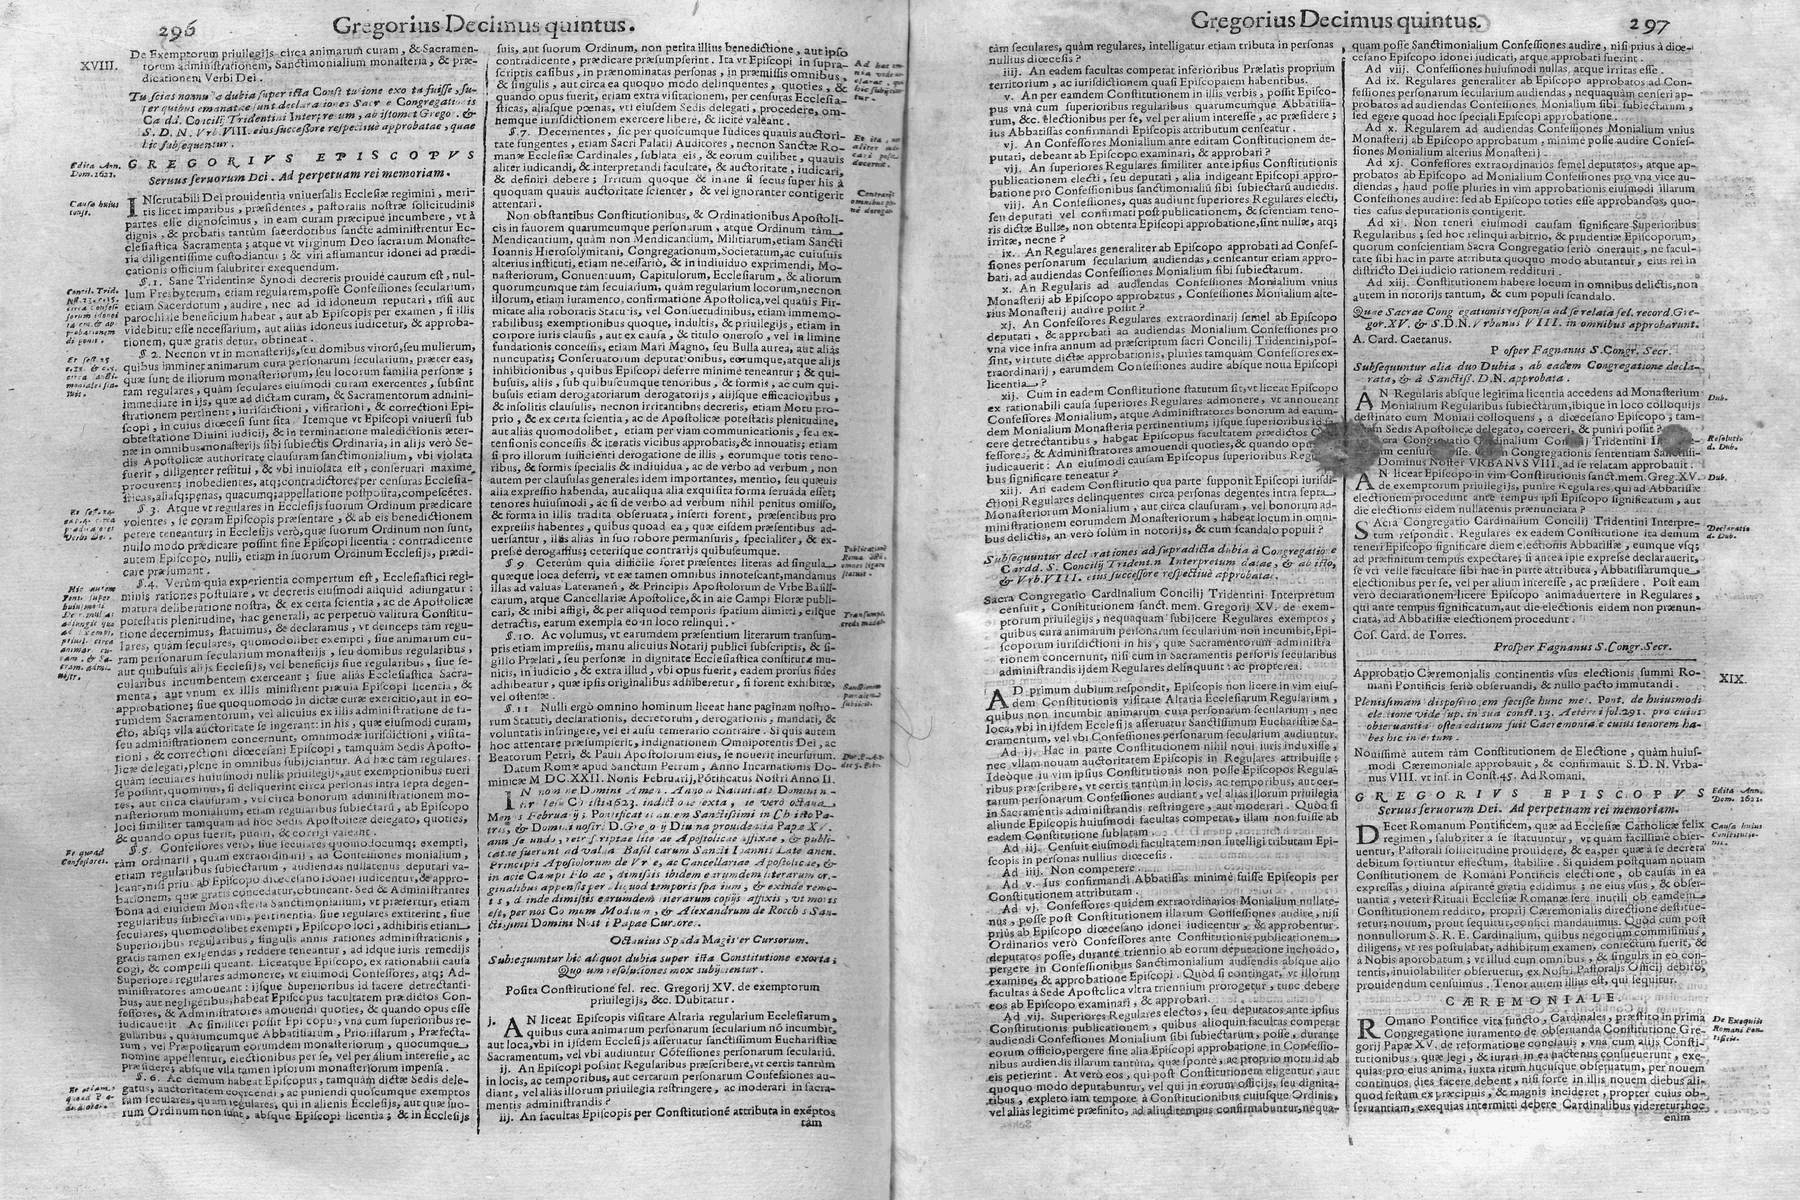 296
Gregorius Decimus quintus.
XVIII.
De Exemptorum priuilegijs circa animarum curam, & Sacramen-
torum administrationem, Sanctimonialium monasteria, & præ-
dicationem Verbi Dei.
S. D. N. Vrb. VIII. eius successore respectiuè approbatæ, quæ
hic subsequentur.
GREGORIVS EPISCOPVS
Seruus seruorum Dei. Ad perpetuam rei memoriam.
Edita Ann.
Dom. 1622.
Causa huius
const.
INscrutabili Dei prouidentia vniuersalis Ecclesiæ regimini, meri-
tis licet imparibus, præsidentes, pastoralis nostræ solicitudinis
partes esse dignoscimus, in eam curam præcipuè incumbere, vt à
dignis, & probatis tantùm sacerdotibus sanctè administrentur Ec-
clesiastica Sacramenta; atque vt virginum Deo sacrarum Monaste-
ria diligentissime custodiantur; & viri assumantur idonei ad prædi-
cationis officium salubriter exequendum.
§. 1. Sane Tridentinæ Synodi decretis prouidè cautum est, nul-
lum Presbyterum, etiam regularem, posse Confessiones secularium,
etiam Sacerdotum, audire, nec ad id idoneum reputari, nisi aut
parochiale beneficium habeat, aut ab Episcopis per examen, si illis
videbitur esse necessarium, aut aliàs idoneus iudicetur, & approba-
tionem, quæ gratis detur, obtineat.
§. 2. Necnon vt in monasterijs, seu domibus virorũ, seu mulierum,
quibus imminet animarum cura personarum secularium, præter eas,
quæ sunt de illorum monasteriorum, seu locorum familia personæ;
tam regulares, quàm seculares eiusmodi curam exercentes, subsint
immediate in ijs, quæ ad dictam curam, & Sacramentorum admini-
strationem pertinent, iurisdictioni, visitationi, & correctioni Epi-
scopi, in cuius diœcesi sunt sita. Itemque vt Episcopi vniuersi sub
obtestatione Diuini iudicij, & in terminatione maledictionis æter
næ in omnibus monasterijs sibi subiectis Ordinaria, in alijs verò Se-
dis Apostolicæ authoritate clausuram sanctimonialium, vbi violata
fuerit, diligenter restitui, & vbi inuiolata est, conseruari maximè
procurent; inobedientes, atq; contradictores per censuras Ecclesia-
sticas, aliasq; pœnas, quacumq; appellatione postposita, compescẽtes.
§. 3. Atque vt regulares in Ecclesijs suorum Ordinum prædicare
volentes, se coram Episcopis præsentare, & ab eis benedictionem
petere teneantur; in Ecclesijs verò, quæ suorum Ordinum non sunt,
nullo modo prædicare possint sine Episcopi licentia: contradicente
autem Episcopo, nulli, etiam in suorum Ordinum Ecclesijs, prædi-
care præsumant.
§. 4. Verùm quia experientia compertum est, Ecclesiastici regi-
minis rationes postulare, vt decretis eiusmodi aliquid adiungatur:
matura deliberatione nostra, & ex certa scientia, ac de Apostolicæ
potestatis plenitudine, hac generali, ac perpetuò valitura Constitu-
tione decernimus, statuimus, & declaramus, vt deinceps tàm regu-
lares, quàm seculares, quomodolibet exempti, siue animarum cu-
ram personarum secularium monasterijs, seu domibus regularibus,
aut quibusuis alijs Ecclesijs, vel beneficijs siue regularibus, siue se-
cularibus incumbentem exerceant; siue aliàs Ecclesiastica Sacra-
menta, aut vnum ex illis ministrent præuia Episcopi licentia, &
approbatione; siue quoquomodo in dictæ curæ exercitio, aut in eo-
rumdem Sacramentorum, vel alicuius ex illis administratione de fa-
cto, absq; vlla auctoritate se ingerant: in his, quæ eiusmodi curam,
seu administrationem concernunt, omnimodæ iurisdictioni, visitati-
oni, & correctioni diœcesani Episcopi, tamquàm Sedis Aposto-
licæ delegati, plene in omnibus subijciantur. Ad hæc tàm regulares
quàm seculares huiusmodi nullis priuilegijs, aut exemptionibus tueri
se possint, quominus, si deliquerint circa personas intra septa degen-
tes, aut circa clausuram, vel circa bonorum administrationem mo-
nasteriorum monialium, etiam regularibus subiectarũ, ab Episcopo
loci similiter tamquam ad hoc Sedis Apostolicæ delegato, quoties,
& quando opus fuerit, puniri, & corrigi valeant.
Et quoad
Confessores.
§. 5. Confessores verò, siue seculares quomodocumq; exempti,
tàm ordinarij, quàm extraordinarij, ad Confessiones monialium,
etiam regularibus subiectarum, audiendas nullatenus deputari va-
leant, nisi prius ab Episcopo diœcesano idonei iudicentur, & appro-
bationem, quæ gratis concedatur, obtineant. Sed & Administrantes
bona ad eiusdem Monasteria Sanctimonialium, vt præfertur, etiam
regularibus subiectarum, pertinentia, siue regulares extiterint, siue
seculares, quomodolibet exempti, Episcopo loci, adhibitis etiam
Superioribus regularibus, singulis annis rationes administrationis,
gratis tamen exigendas, reddere teneantur, ad idque iuris remedijs
cogi, & compelli queant. Liceatque Episcopo, ex rationabili causa
Superiores regulares admonere, vt eiusmodi Confessores, atq; Ad-
ministratores amoueant: ijsque Superioribus id facere detrectanti-
bus, aut negligentibus, habeat Episcopus facultatem prædictos Con-
fessores, & Administratores amouendi quoties, & quando opus esse
iudicauerit. Ac similiter possit Episcopus, vnà cum superioribus re-
gularibus, quarumcumque Abbatissarum, Priorissarum, Præfecta-
rum, vel Præpositarum eorumdem monasteriorum, quocumque
nomine appellentur, electionibus per se, vel per alium interesse, ac
præsidere; absque vlla tamen ipsorum monasteriorum impensa.
§. 6. Ac demum habeat Episcopus, tamquàm dictæ Sedis dele-
gatus, auctoritatem coercendi, ac puniendi quoscumque exemptos
tàm seculares, quam regulares, qui in alienis Ecclesijs, aut quæ suo-
rum Ordinum non sunt, absque Episcopi licentia; & in Ecclesijs
suis, aut suorum Ordinum, non petita illius benedictione, aut ipso
contradicente, prædicare præsumpserint. Ita vt Episcopi in supra-
scriptis casibus, in prænominatas personas, in præmissis omnibus,
& singulis, aut circa ea quoquo modo delinquentes, quoties, &
quando opus fuerit, etiam extra visitationem, per censuras Ecclesia-
sticas, aliasque pœnas, vti eiusdem Sedis delegati, procedere, om-
nemque iurisdictionem exercere liberè, & licitè valeant.
§. 7. Decernentes, sic per quoscumque Iudices quauis auctori-
tate fungentes, etiam Sacri Palatij Auditores, necnon Sanctæ Ro-
manæ Ecclesiæ Cardinales, sublata eis, & eorum cuilibet, quauis
aliter iudicandi, & interpretandi facultate, & auctoritate, iudicari,
& definiri debere; Irritum quoque & inane si secus super his à
quoquam quauis auctoritate scienter, & vel ignoranter contigerit
attentari.
Non obstantibus Constitutionibus, & Ordinationibus Apostoli-
cis in fauorem quarumcumque personarum, atque Ordinum tàm
Mendicantium, quàm non Mendicantium, Militiarum, etiam Sancti
Ioannis Hierosolymitani, Congregationum, Societatum, ac cuiusuis
alterius instituti, etiam necessariò, & in indiuiduo exprimendi, Mo-
nasteriorum, Conuentuum, Capitulorum, Ecclesiarum, & aliorum
quorumcumque tàm secularium, quàm regularium locorum, necnon
illorum, etiam iuramento, confirmatione Apostolica, vel quauis Fir-
mitate alia roboratis Statutis, vel Consuetudinibus, etiam immemo-
rabilibus; exemptionibus quoque, indultis, & priuilegijs, etiam in
corpore iuris clausis, aut ex causa, & titulo oneroso, vel in limine
fundationis concessis, etiam Mari Magno, seu Bulla aurea, aut aliàs
nuncupatis; Conseruatorum deputationibus, eorumque, atque alijs
inhibitionibus, quibus Episcopi deferre minimè teneantur; & qui-
busuis, alijs, sub quibuscumque tenoribus, & formis, ac cum qui-
busuis etiam derogatoriarum derogatorijs, alijsque efficacioribus,
& insolitis clausulis, necnon irritantibus decretis, etiam Motu pro-
prio, & ex certa scientia, ac de Apostolicæ potestatis plenitudine,
aut aliàs quomodolibet, etiam per viam communicationis, seu ex-
tensionis concessis & iteratis vicibus approbatis, & innouatis; etiam
si pro illorum sufficienti derogatione de illis, eorumque totis teno-
ribus, & formis specialis & indiuidua, ac de verbo ad verbum, non
autem per clausulas generales idem importantes, mentio, seu quæuis
alia expressio habenda, aut aliqua alia exquisita forma seruãda esset;
tenores huiusmodi, ac si de verbo ad verbum nihil penitus omisso,
& forma in illis tradita obseruata, inserti forent, præsentibus pro
expressis habentes, quibus quoad ea, quæ eisdem præsentibus ad-
uersantur, illis aliàs in suo robore permansuris, specialiter, & ex-
presse derogamus; ceterisque contrarijs quibuscumque.
§. 9. Ceterùm quia difficile foret præsentes literas ad singula
quæque loca deferri, vt eæ tamen omnibus innotescant, mandamus
illas ad valuas Lateranen. & Principis Apostolorum de Vrbe Basili-
carum, atque Cancellariæ Apostolicæ, & in acie Campi Floræ publi-
cari, & inibi affigi, & per aliquod temporis spatium dimitti, eisque
detractis, earum exempla eo in loco relinqui.
§. 10. Ac volumus, vt earumdem præsentium literarum transum-
ptis etiam impressis, manu alicuius Notarij publici subscriptis, & si-
gillo Prælati, seu personæ in dignitate Ecclesiastica constitutæ mu-
nitis, in iudicio, & extra illud, vbi opus fuerit, eadem prorsus fides
adhibeatur, quæ ipsis originalibus adhiberetur, si forent exhibitæ,
vel ostensæ.
§. 11. Nulli ergò omnino hominum liceat hanc paginam nostro-
rum Statuti, declarationis, decretorum, derogationis, mandati, &
voluntatis infringere, vel ei ausu temerario contraire. Si quis autem
hoc attentare præsumpserit, indignationem Omnipotentis Dei, ac
Beatorum Petri, & Pauli Apostolorum eius, se nouerit incursurum.
Datum Romæ apud Sanctum Petrum, Anno Incarnationis Do-
minicæ M DC.XXII. Nonis Februarij, Põtificatus Nostri Anno II.
Octauius Spada Magister Cursorum.
Subsequuntur hic aliquot dubia super ista Constitutione exorta;
Quorum resolutiones mox subijcientur.
Posita Constitutione fel. rec. Gregorij XV. de exemptorum
priuilegijs, &c. Dubitatur.
j. AN liceat Episcopis visitare Altaria regularium Ecclesiarum,
quibus cura animarum personarum secularium nõ incumbit,
aut loca, vbi in ijsdem Ecclesijs asseruatur sanctissimum Eucharistiæ
Sacramentum, vel vbi audiuntur Cõfessiones personarum seculariũ.
ij. An Episcopi possint Regularibus præscribere, vt certis tantùm
in locis, ac temporibus, aut certarum personarum Confessiones au-
diant, vel aliàs illorum priuilegia restringere, ac moderari in sacra-
mentis administrandis?
iij. An facultas Episcopis per Constitutionẽ attributa in exẽptos
tàm
Gregorius Decimus quintus.
297
tàm seculares, quàm regulares, intelligatur etiam tributa in personas
nullius diœcesis?
iiij. An eadem facultas competat inferioribus Prælatis proprium
territorium, ac iurisdictionem quasi Episcopalem habentibus.
v. An per eamdem Constitutionem in illis verbis, possit Episco-
pus vnà cum superioribus regularibus quarumcumque Abbatissa-
rum, &c. electionibus per se, vel per alium interesse, ac præsidere;
ius Abbatissas confirmandi Episcopis attributum censeatur.
vj. An Confessores Monialium ante editam Constitutionem de-
putati, debeant ab Episcopo examinari, & approbari?
vij. An superiores Regulares similiter ante ipsius Constitutionis
publicationem electi, seu deputati, alia indigeant Episcopi appro-
batione pro Confessionibus sanctimonialiũ sibi subiectarũ audiẽdis.
viij. An Confessiones, quas audiunt superiores Regulares electi,
seu deputati vel confirmati post publicationem, & scientiam teno-
ris dictæ Bullæ, non obtenta Episcopi approbatione, sint nullæ, atq;
irritæ, necne?
ix. An Regulares generaliter ab Episcopo approbati ad Confes-
siones personarum secularium audiendas, censeantur etiam appro-
bati, ad audiendas Confessiones Monialium sibi subiectarum.
x. An Regularis ad audiendas Confessiones Monialium vnius
Monasterij ab Episcopo approbatus, Confessiones Monialium alte-
rius Monasterij audire possit?
xj. An Confessores Regulares extraordinarij semel ab Episcopo
deputati, & approbati ad audiendas Moniales Confessiones pro
vna vice infra annum ad præscriptum sacri Concilij Tridentini, pos-
sint, virtute dictæ approbationis, pluries tamquàm Confessores ex-
traordinarij, earumdem Confessiones audire absque noua Episcopi
licentia?
xij. Cum in eadem Constitutione statutum sit, vt liceat Episcopo
ex rationabili causa superiores Regulares admonere, vt amoueant
Confessores Monialium, atque Administratores bonorum ad earum-
dem Monialium Monasteria pertinentium; ijsque superioribus id fa-
cere detrectantibus, habeat Episcopus facultatem prædictos
fessores, & Administratores amouendi quoties, & quando opus
iudicauerit: An eiusmodi causam Episcopus superioribus
bus significare teneatur?
xiij. An eadem Constitutio qua parte supponit Episcopi iurisdi-
ctioni Regulares delinquentes circa personas degentes intra septa
Monasteriorum Monialium, aut circa clausuram, vel bonorum ad-
ministrationem eorumdem Monasteriorum, habeat locum in omni-
bus delictis, an verò solùm in notorijs, & cum scandalo populi?
Subsequuntur declarationes ad supradicta dubia à Congregatione
Cardd. S. Concilij Trident. Interpretum datæ, & ab isto,
& Vrb. VIII. eius successore respectiuè approbatæ.
Sacra Congregatio Cardinalium Concilij Tridentini Interpretum
censuit, Constitutionem sanct. mem. Gregorij XV. de exem-
ptorum priuilegijs, nequaquam subijcere Regulares exemptos,
quibus cura animarum personarum secularium non incumbit, Epi-
scoporum iurisdictioni in his, quæ Sacramentorum administra-
tionem concernunt, nisi cum in Sacramentis personis secularibus
administrandis ijdem Regulares delinquunt: ac propterea.
AD primum dubium respondit, Episcopis non licere in vim eius-
dem Constitutionis visitare Altaria Ecclesiarum Regularium,
quibus non incumbit animarum cura personarum secularium, nec
loca, vbi in ijsdem Ecclesijs asseruatur Sanctissimum Eucharistiæ Sa-
cramentum, vel vbi Confessiones personarum secularium audiuntur.
Ad ij. Hac in parte Constitutionem nihil noui iuris induxisse,
nec vllam nouam auctoritatem Episcopis in Regulares attribuisse:
Ideòque iu vim ipsius Constitutionis non posse Episcopos Regula-
ribus præscribere, vt certis tantùm in locis, ac temporibus, aut cer-
tarum personarum Confessiones audiant, vel aliàs illorum priuilegia
in Sacramentis administrandis restringere, aut moderari. Quòd si
aliunde Episcopis huiusmodi facultas competat, illam non fuisse ab
eadem Constitutione sublatam.
Ad iij. Censuit eiusmodi facultatem non intelligi tributam Epi-
scopis in personas nullius diœcesis.
Ad iiij. Non competere.
Ad v. Ius confirmandi Abbatissas minimè fuisse Episcopis per
Constitutionem attributam.
Ad vj. Confessores quidem extraordinarios Monialium nullate-
nus, posse post Constitutionem illarum Confessiones audire, nisi
prius ab Episcopo diœcesano idonei iudicentur, & approbentur.
Ordinarios verò Confessores ante Constitutionis publicationem
deputatos posse, durante triennio ab eorum deputatione inchoado,
pergere in Confessionibus Sanctimonialium audiendis absque alio
examine, & approbatione Episcopi. Quòd si contingat, vt illorum
facultas à Sede Apostolica vltra triennium prorogetur, tunc debere
eos ab Episcopo examinari, & approbari.
Ad vij. Superiores Regulares electos, seu deputatos ante ipsius
Constitutionis publicationem, quibus alioquin facultas competat
audiendi Confessiones Monialium sibi subiectarum, posse, durante
eorum officio, pergere sine alia Episcopi approbatione in Confessio-
nibus audiendis illarum tantùm, quæ spontè, ac proprio motu id ab
eis petierint. At verò eos, qui post Constitutionem eligentur, aut
quoquo modo deputabuntur, vel qui in eorum officijs, seu dignita-
tibus, expleto iam tempore à Constitutionibus cuiusque Ordinis,
vel aliàs legitimè præfinito, ad aliud tempus confirmabuntur, nequa-
quam posse Sanctimonialium Confessiones audire, nisi prius à diœ-
cesano Episcopo idonei iudicati, atque approbati fuerint.
Ad viij. Confessiones huiusmodi nullas, atque irritas esse.
Ad ix. Regulares generaliter ab Episcopo approbatos ad Con-
fessiones personarum secularium audiendas, nequaquam censeri ap-
probatos ad audiendas Confessiones Monialium sibi subiectarum,
sed egere quoad hoc speciali Episcopi approbatione.
Ad x. Regularem ad audiendas Confessiones Monialium vnius
Monasterij ab Episcopo approbatum, minimè posse audire Confes-
siones Monialium alterius Monasterij.
Ad xj. Confessores extraordinarios semel deputatos, atque ap-
probatos ab Episcopo ad Monialium Confessiones pro vna vice au-
diendas, haud posse pluries in vim approbationis eiusmodi illarum
Confessiones audire: sed ab Episcopo toties esse approbandos, quo-
ties casus deputationis contigerit.
Ad xij. Non teneri eiusmodi causam significare Superioribus
Regularibus; sed hoc relinqui arbitrio, & prudentiæ Episcoporum,
quorum conscientiam Sacra Congregatio seriò onerauit, ne facul-
tate sibi hac in parte attributa quoquo modo abutantur, eius rei in
districto Dei iudicio rationem reddituri.
Ad xiij. Constitutionem habere locum in omnibus delictis, non
autem in notorijs tantum, & cum populi scandalo.
Quæ Sacræ Congregationis responsa ad se relata fel. record. Gre-
gor. XV. & S.D.N. Vrbanus VIII. in omnibus approbarunt.
A. Card. Caetanus.
Prosper Fagnanus S. Congr. Secr.
Subsequuntur alia duo Dubia, ab eadem Congregatione decla-
rata, & à Sanctiss. D.N. approbata.
Dub.
AN Regularis absque legitima licentia accedens ad Monasterium
Monialium Regularibus subiectarum, ibique in loco colloquijs
destinato cum Moniali colloquens, a diœcesano Episcopo, tam-
quam Sedis Apostolicæ delegato, coerceri, & puniri possit?
Resolutio
d. Dub.
Congregatio Cardinalium Concilij Tridentini
censuit posse. Congregationis sententiam Sanctissi-
Dominus Noster VRBANVS VIII. ad se relatam approbauit.
Dub.
AN liceat Episcopo in vim Constitutionis sanct. mem. Greg. XV.
de exemptorum priuilegijs, punire Regulares, qui ad Abbatissæ
electionem procedunt ante tempus ipsi Episcopo significatum, aut
die electionis eidem nullatenus prænunciata?
Declaratio
d. Dub.
SAcra Congregatio Cardinalium Concilij Tridentini Interpre-
tum respondit. Regulares ex eadem Constitutione ita demum
teneri Episcopo significare diem electionis Abbatissæ, eumque vsq;
ad præfinitum tempus expectare; si antea ipse expressè declarauerit,
se vti velle facultate sibi hac in parte attributa, Abbatissarumque
electionibus per se, vel per alium interesse, ac præsidere. Post eam
verò declarationem licere Episcopo animaduertere in Regulares,
qui ante tempus significatum, aut die electionis eidem non prænun-
ciata, ad Abbatissæ electionem procedunt.
Cos. Card. de Torres.
Prosper Fagnanus S. Congr. Secr.
XIX.
Approbatio Cæremonialis continentis vsus electionis summi Ro-
mani Pontificis seriò obseruandi, & nullo pacto immutandi.
Nouissimè autem tàm Constitutionem de Electione, quàm huius-
modi Cæremoniale approbauit, & confirmauit S. D. N. Vrba-
nus VIII. vt inf. in Const. 45. Ad Romani.
GREGORIVS EPISCOPVS
Seruus seruorum Dei. Ad perpetuam rei memoriam.
Edita Ann.
Dom. 1621.
Causa huius
Constitutio-
nis.
DEcet Romanum Pontificem, quæ ad Ecclesiæ Catholicæ felix
regimen, salubriter à se statuuntur, vt quàm facillimè obser-
uentur, Pastorali sollicitudine prouidere, & ea, per quæ à se decreta
debitum sortiuntur effectum, stabilire. Si quidem postquam nouam
de Romani Pontificis electione, ob causas in ea
expressas, diuina aspirante gratia edidimus; ne eius vsus, & obser-
uantia, veteri Rituali Ecclesiæ Romanæ sere inutili ob eamdem
reddito, proprij Cæremonialis directione destitue-
retur; nonum, prout sequitur, confici mandauimus. Quod cum post
nonnullorum S. R. E. Cardinalium, quibus negotium commisimus,
diligens, vt res postulabat, adhibitum examen, confectum fuerit, &
à Nobis approbatum; vt illud cum omnibus, & singulis in eo con-
tentis, inuiolabiliter obseruetur, ex Nostri Pastoralis Officij debito,
prouidendum censuimus. Tenor autem illius est, qui sequitur.
CÆREMONIALE.
De Exequiis
Romani Pon-
tificis.
ROmano Pontifice vita functo, Cardinales, præstito in prima
Congregatione iuramento de obseruanda Constitutione Gre-
gorij Papæ XV. de reformatione conclauis, vnà cum alijs Consti-
tutionibus, quæ legi, & iurari in ea hactenus consueuerunt, exe-
quias pro eius anima, iuxta ritum hucusque obseruatum, per nouem
continuos dies facere debent, nisi fortè in illis nouem diebus ali-
quod festum ex præcipuis, & magnis incideret, propter cuius ob-
seruantiam, exequias intermitti debere Cardinalibus videretur; hoc
enim